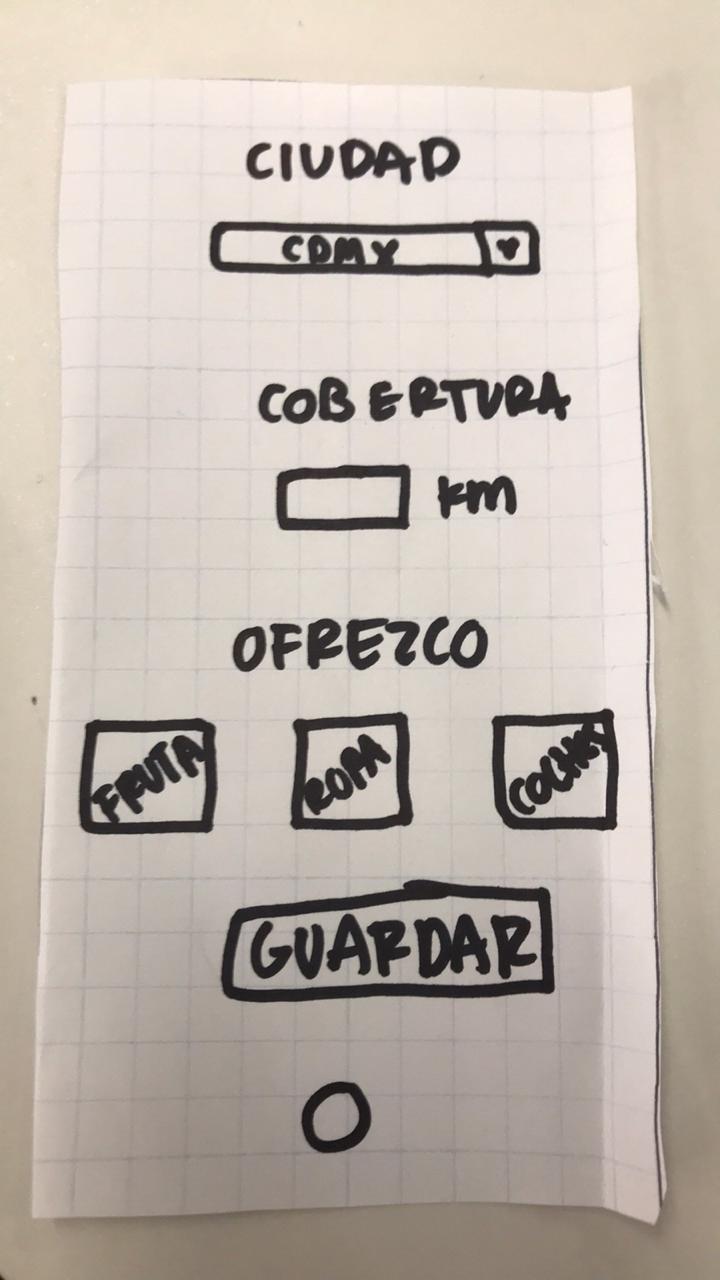 CIUDAD
CDMX
COBERTURA
km
OFREZCO
FRUTA ROPA COCHES
GUARDAR